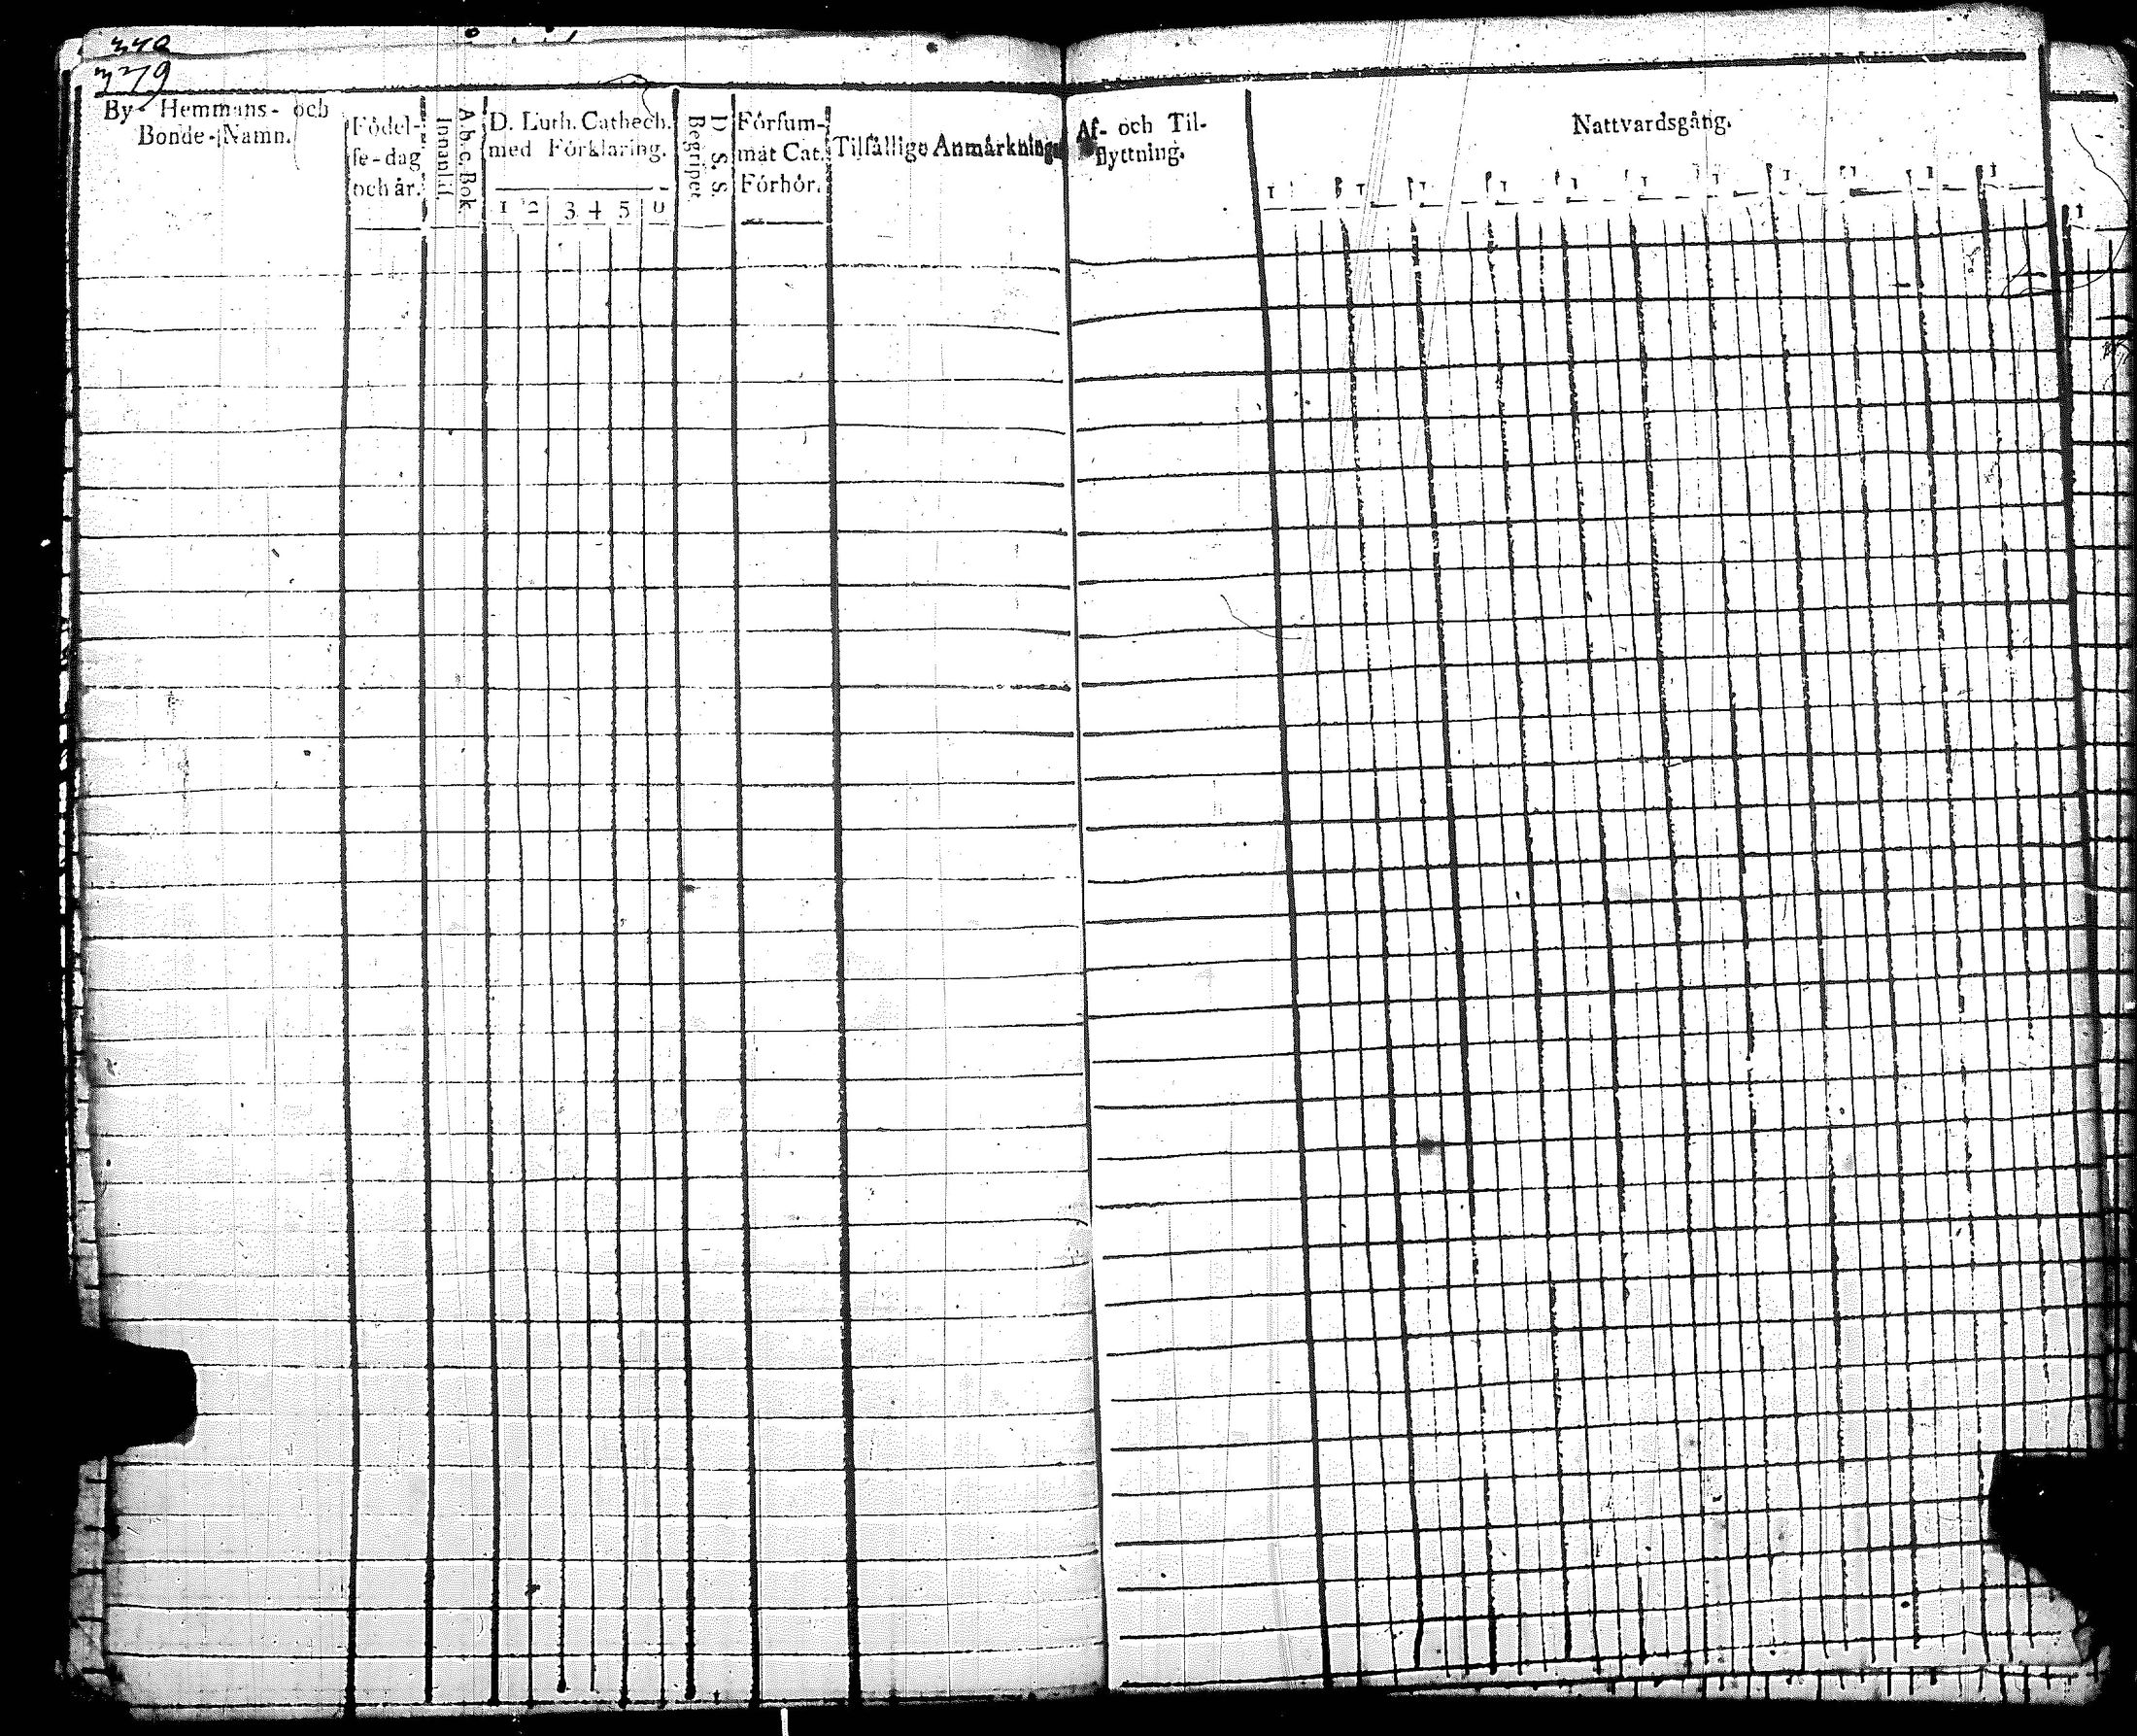 340
379
By- Hemmans- och
Bonde-Namn.
Födel-
se-dag
och år.
Innantil.
A.b.c. Bok.
D. Luth. Cathech.
med Förklaring.
1 2 3 4 5 6
Begriper.
D. S. S.
Försum-
mat Cat.
Förhör.
Tilfällige Anmärkningar
Af- och Til-
flyttning.
Nattvardsgång.
1 1 1 1 1 1 1 1 1 1 1
1